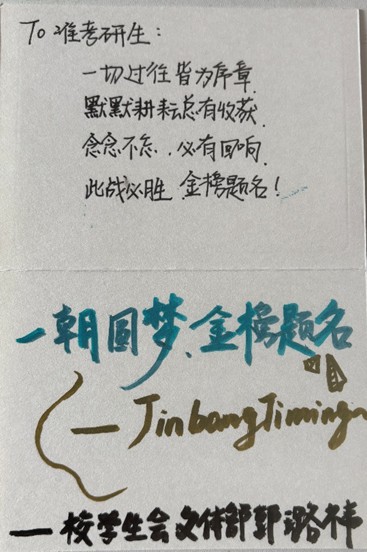 To 准考研生:
一切过往 皆为序章
默默耕耘总有收获
念念不忘,必有回响
此战必胜 金榜题名!
一朝圆梦、金榜题名
— Jinbang Timing
— 校学生会文体部郭潞祎